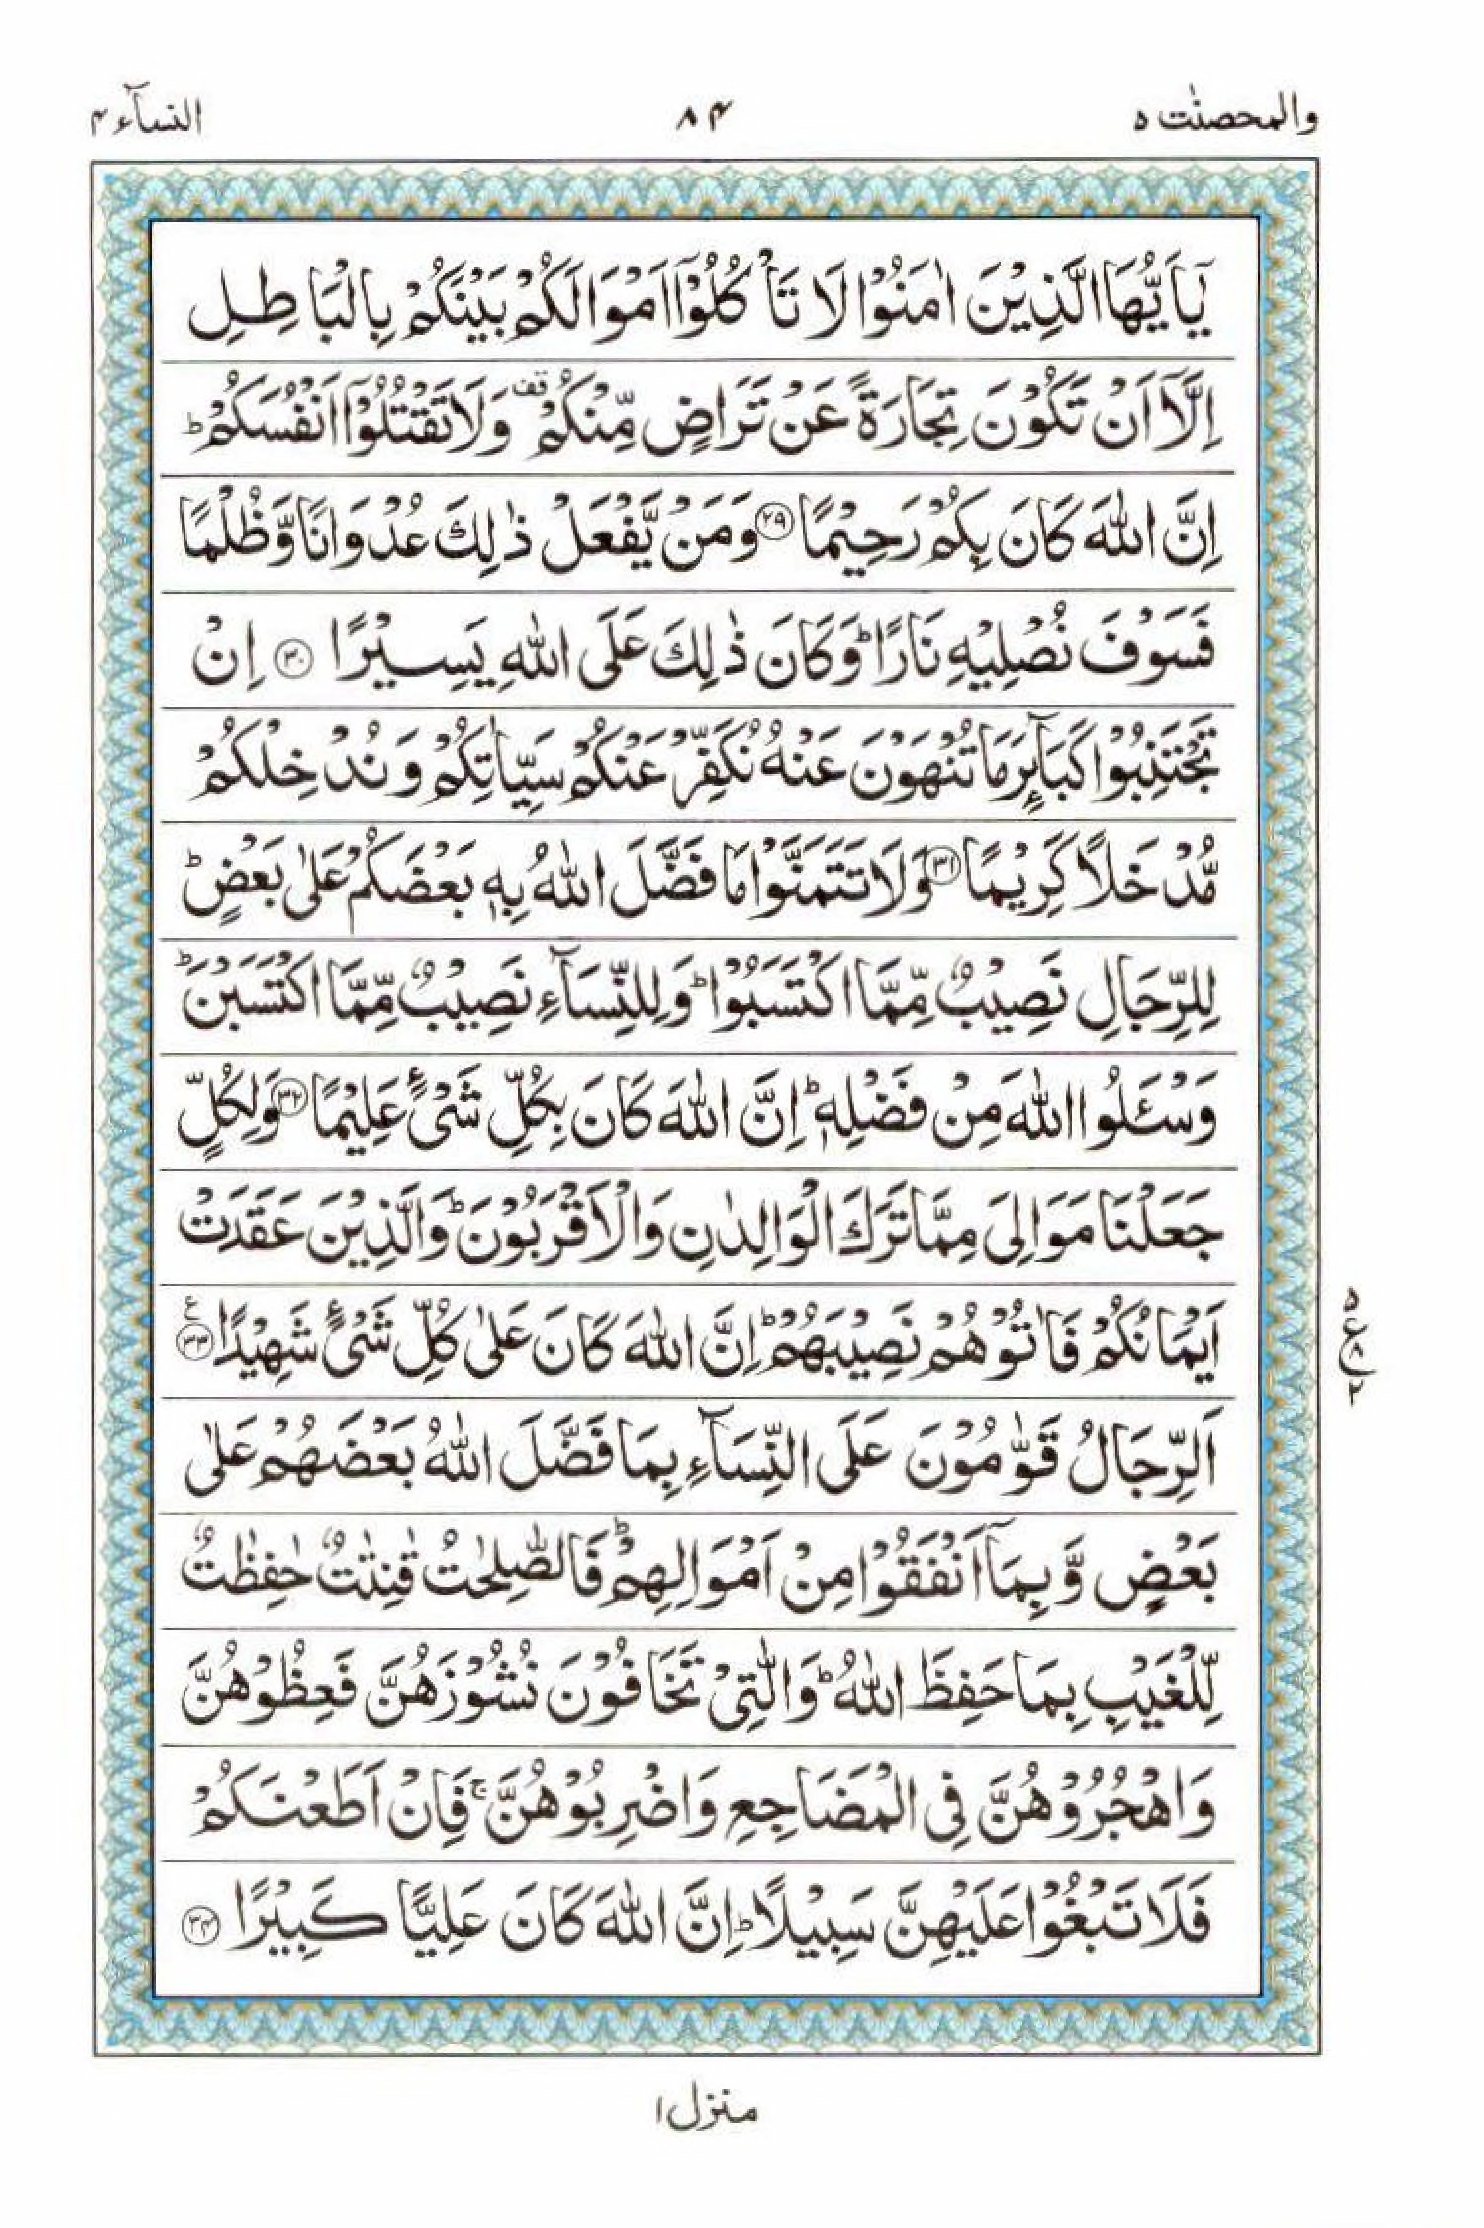 والمحصنٰت ۵ ۸۴ النسآء ۴
يٰٓاَيُّهَا الَّذِيْنَ اٰمَنُوْا لَا تَاْكُلُوْٓا اَمْوَالَكُمْ بَيْنَكُمْ بِالْبَاطِلِ
اِلَّآ اَنْ تَكُوْنَ تِجَارَةً عَنْ تَرَاضٍ مِّنْكُمْ ۣ وَلَا تَقْتُلُوْٓا اَنْفُسَكُمْ ؕ
اِنَّ اللّٰهَ كَانَ بِكُمْ رَحِيْمًا ﴿۲۹﴾ وَمَنْ يَّفْعَلْ ذٰلِكَ عُدْوَانًا وَّظُلْمًا
فَسَوْفَ نُصْلِيْهِ نَارًا ؕ وَكَانَ ذٰلِكَ عَلَى اللّٰهِ يَسِيْرًا ﴿۳۰﴾ اِنْ
تَجْتَنِبُوْا كَبَآئِرَ مَا تُنْهَوْنَ عَنْهُ نُكَفِّرْ عَنْكُمْ سَيِّاٰتِكُمْ وَنُدْخِلْكُمْ
مُّدْخَلًا كَرِيْمًا ﴿۳۱﴾ وَلَا تَتَمَنَّوْا مَا فَضَّلَ اللّٰهُ بِهٖ بَعْضَكُمْ عَلٰى بَعْضٍ ؕ
لِلرِّجَالِ نَصِيْبٌ مِّمَّا اكْتَسَبُوْا ؕ وَلِلنِّسَآءِ نَصِيْبٌ مِّمَّا اكْتَسَبْنَ ؕ
وَسْـَٔلُوا اللّٰهَ مِنْ فَضْلِهٖ ؕ اِنَّ اللّٰهَ كَانَ بِكُلِّ شَيْءٍ عَلِيْمًا ﴿۳۲﴾ وَلِكُلٍّ
جَعَلْنَا مَوَالِىَ مِمَّا تَرَكَ الْوَالِدٰنِ وَالْاَقْرَبُوْنَ ؕ وَالَّذِيْنَ عَقَدَتْ
اَيْمَانُكُمْ فَاٰتُوْهُمْ نَصِيْبَهُمْ ؕ اِنَّ اللّٰهَ كَانَ عَلٰى كُلِّ شَيْءٍ شَهِيْدًا ﴿۳۳﴾ ع
۵ ع ۸ ۲
اَلرِّجَالُ قَوّٰمُوْنَ عَلَى النِّسَآءِ بِمَا فَضَّلَ اللّٰهُ بَعْضَهُمْ عَلٰى
بَعْضٍ وَّبِمَآ اَنْفَقُوْا مِنْ اَمْوَالِهِمْ ؕ فَالصّٰلِحٰتُ قٰنِتٰتٌ حٰفِظٰتٌ
لِّلْغَيْبِ بِمَا حَفِظَ اللّٰهُ ؕ وَالّٰتِيْ تَخَافُوْنَ نُشُوْزَهُنَّ فَعِظُوْهُنَّ
وَاهْجُرُوْهُنَّ فِى الْمَضَاجِعِ وَاضْرِبُوْهُنَّ ۚ فَاِنْ اَطَعْنَكُمْ
فَلَا تَبْغُوْا عَلَيْهِنَّ سَبِيْلًا ؕ اِنَّ اللّٰهَ كَانَ عَلِيًّا كَبِيْرًا ﴿۳۴﴾
منزل ۱